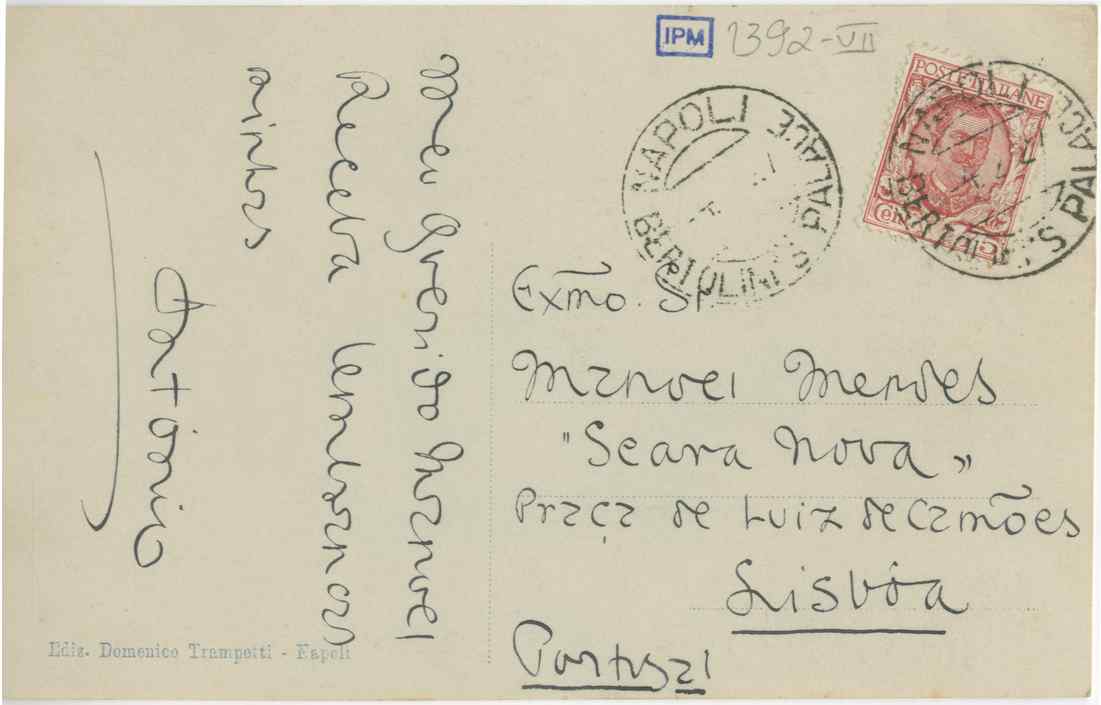 IPM 1392-VII
NAPOLI
BERTOLINI'S PALACE
POSTE ITALIANE
NAPOLI
BERTOLINI'S PALACE
Meu querido Manoel
Receba lembranças
minhas
António
Exmo. Sr
Manoel Mendes
"Seara Nova"
Praça de Luiz de Camões
Lisbôa
Portugal
Ediz. Domenico Trampetti - Napoli